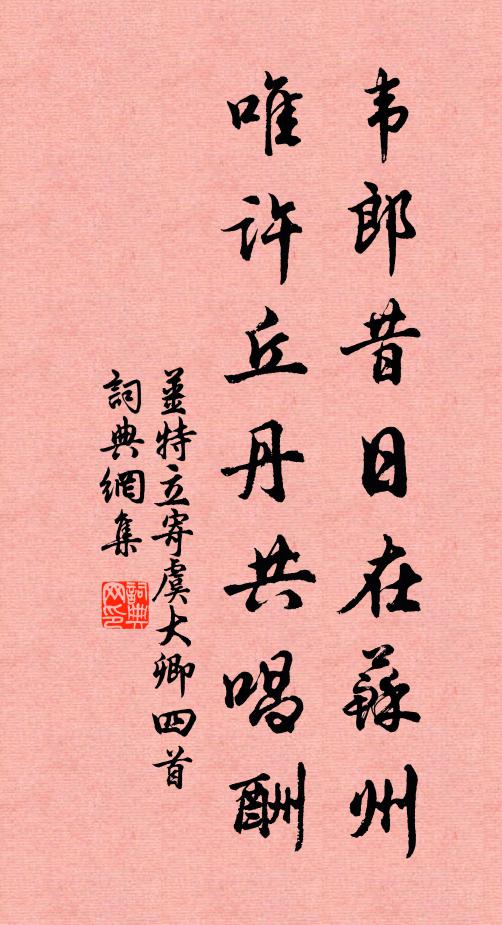 韦郎昔日在蘇州
唯许丘丹共唱酬
姜特立寄虞大卿四首
詞典網集
詞典网印